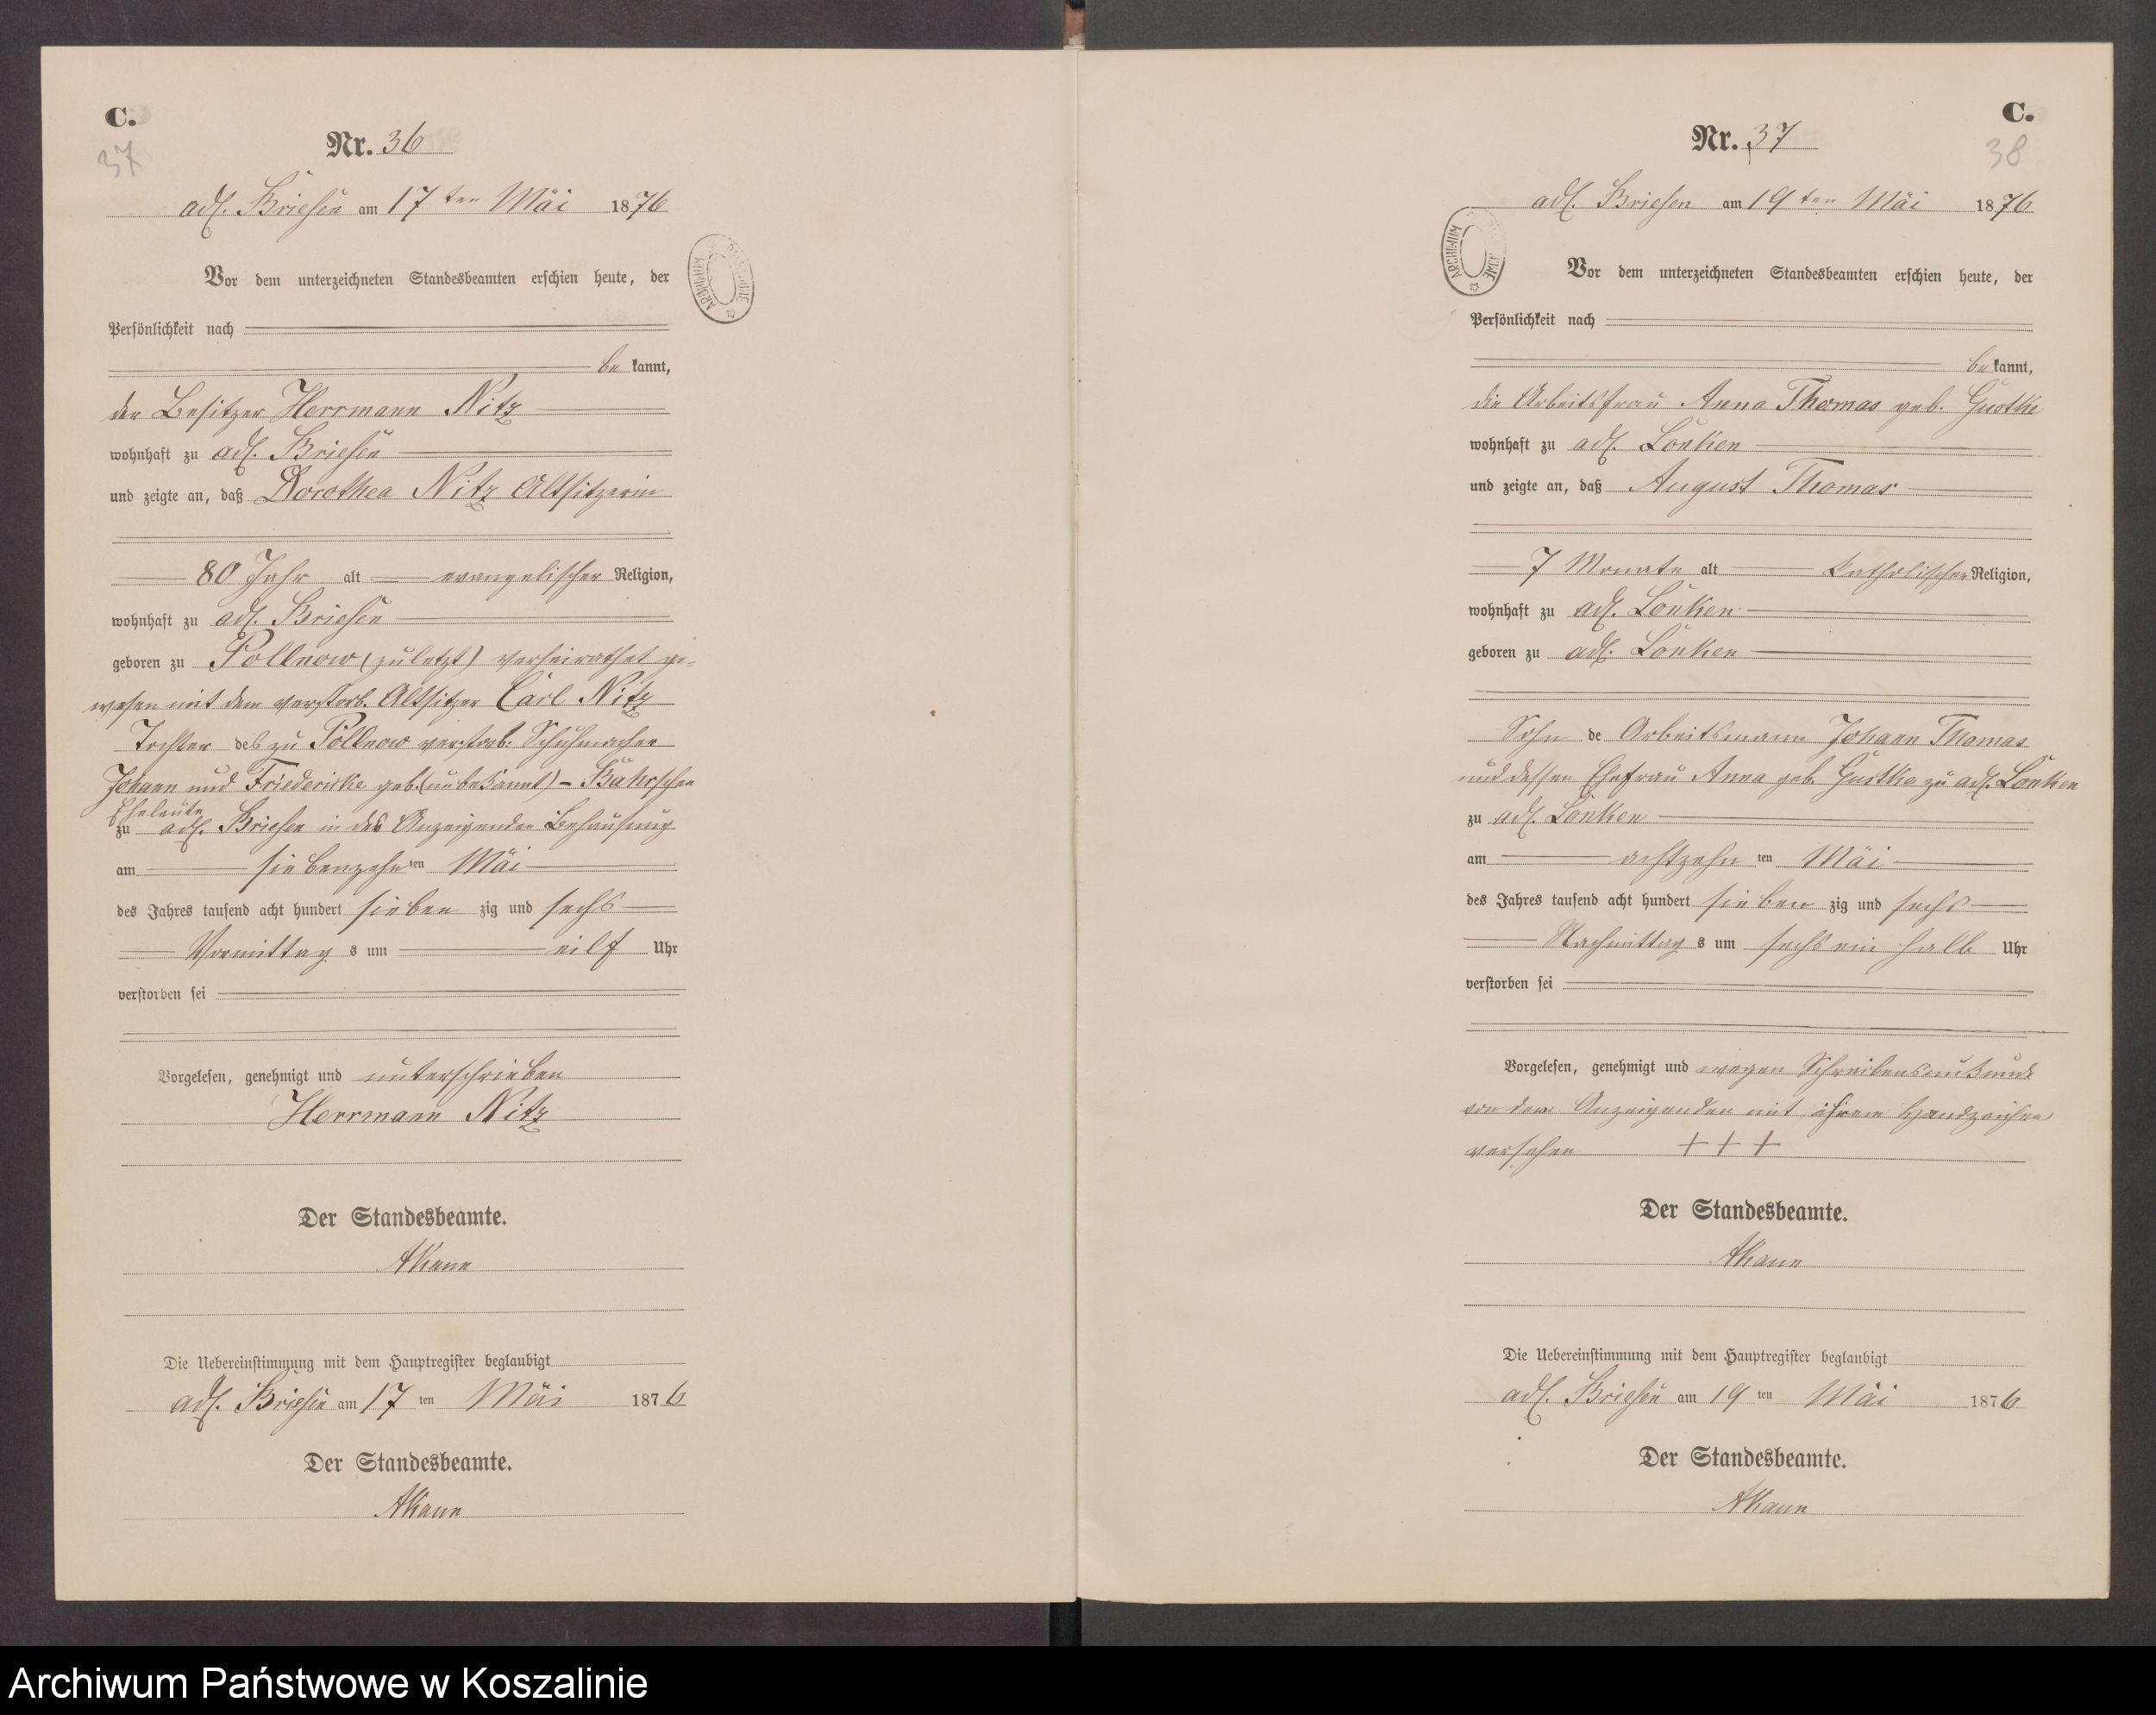 C.
37
Nr. 36
adl. Briesen am 17 ten Mai 1876
Vor dem unterzeichneten Standesbeamten erschien heute, der
Persönlichkeit nach
be kannt,
der Besitzer Herrmann Nitz
wohnhaft zu adl. Briesen
und zeigte an, daß Dorothea Nitz Altsitzerin
80 Jahr alt evangelischer Religion,
wohnhaft zu adl. Briesen
geboren zu Pollnow (zuletzt) verheirathet ge-
wesen mit dem verstorb. Altsitzer Carl Nitz
Tochter des zu Pollnow verstorb. Schuhmacher
Johann und Friederike geb. (unbekannt) - Bährschen
Eheleute
zu adl. Briesen in des Anzeigenden Behausung
am siebenzehn ten Mai
des Jahres tausend acht hundert sieben zig und sechs
Vormittag s um eilf Uhr
verstorben sei
Vorgelesen, genehmigt und unterschrieben
Herrmann Nitz
Der Standesbeamte.
AKann
Die Uebereinstimmung mit dem Hauptregister beglaubigt
adl. Briesen am 17 ten Mai 1876
Der Standesbeamte.
AKann
ARCHIWUM
C.
38
Nr. 37
adl. Briesen am 19 ten Mai 1876
ARCHIWUM
Vor dem unterzeichneten Standesbeamten erschien heute, der
Persönlichkeit nach
be kannt,
die Arbeitsfrau Anna Thomas geb. Gustke
wohnhaft zu adl. Lonken
und zeigte an, daß August Thomas
7 Monate alt katholischer Religion,
wohnhaft zu adl. Lonken
geboren zu adl. Lonken
Sohn de Arbeitsmann Johann Thomas
und dessen Ehefrau Anna geb. Gustke zu adl. Lonken
zu adl. Lonken
am achtzehn ten Mai
des Jahres tausend acht hundert sieben zig und sechs
Nachmittag s um sechs ein halb Uhr
verstorben sei
Vorgelesen, genehmigt und wegen Schreibensunkunde
von der Anzeigenden mit ihrem Handzeichen
versehen + + +
Der Standesbeamte.
AKann
Die Uebereinstimmung mit dem Hauptregister beglaubigt
adl. Briesen am 19 ten Mai 1876
Der Standesbeamte.
AKann
Archiwum Państwowe w Koszalinie